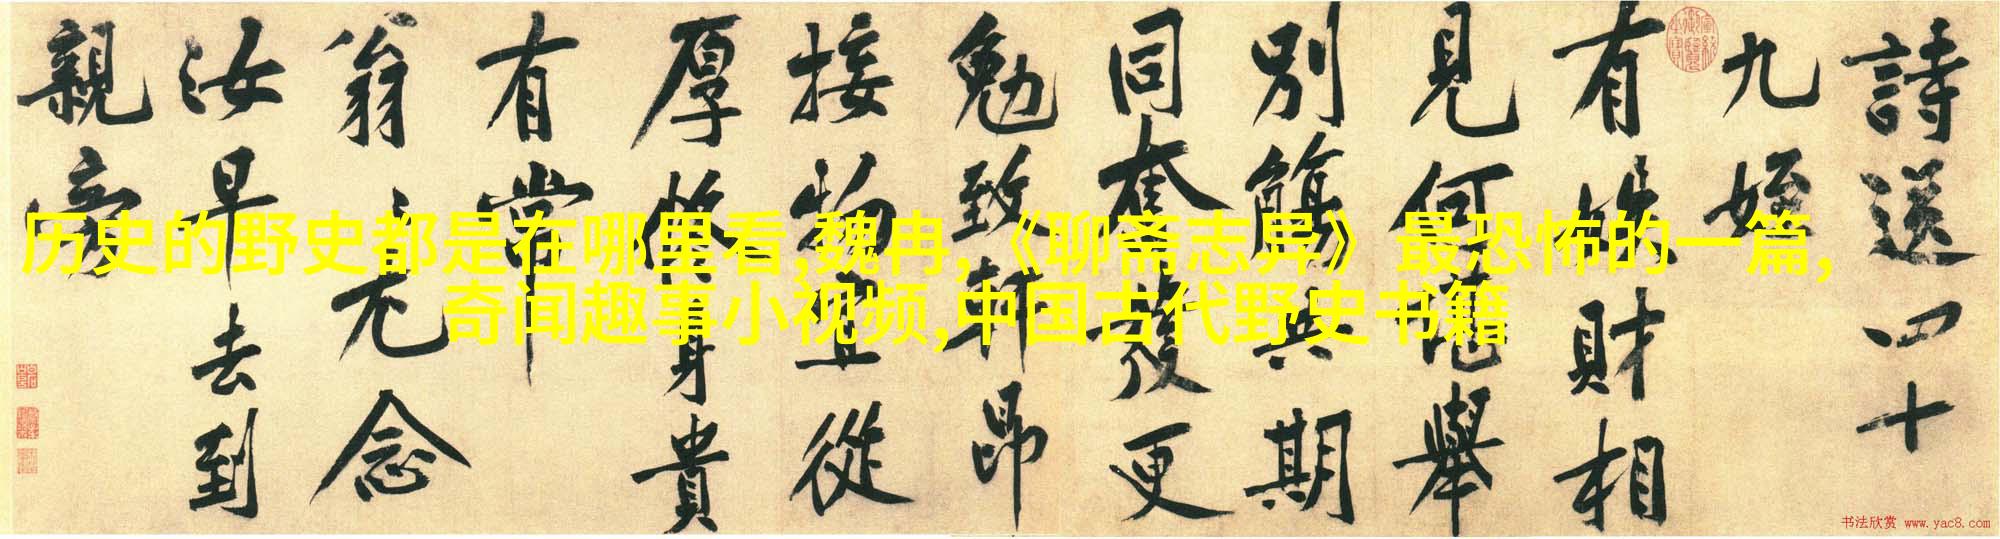 历史的野史都是在哪里看,魏冉,《聊斋志异》最恐怖的一篇,
奇闻趣事小视频,中国古代野史书籍
詩送四十
九姪
有財相
見何地舉
別觴與期
同奮發更
勉致軒昂
接物宜從
厚修身貴
有常
翁無念
汝早去到
親旁
书法欣赏 www.yac8.com